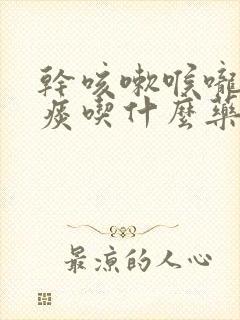 幹咳嗽喉嚨
痰喫什麼藥
最涼的人心